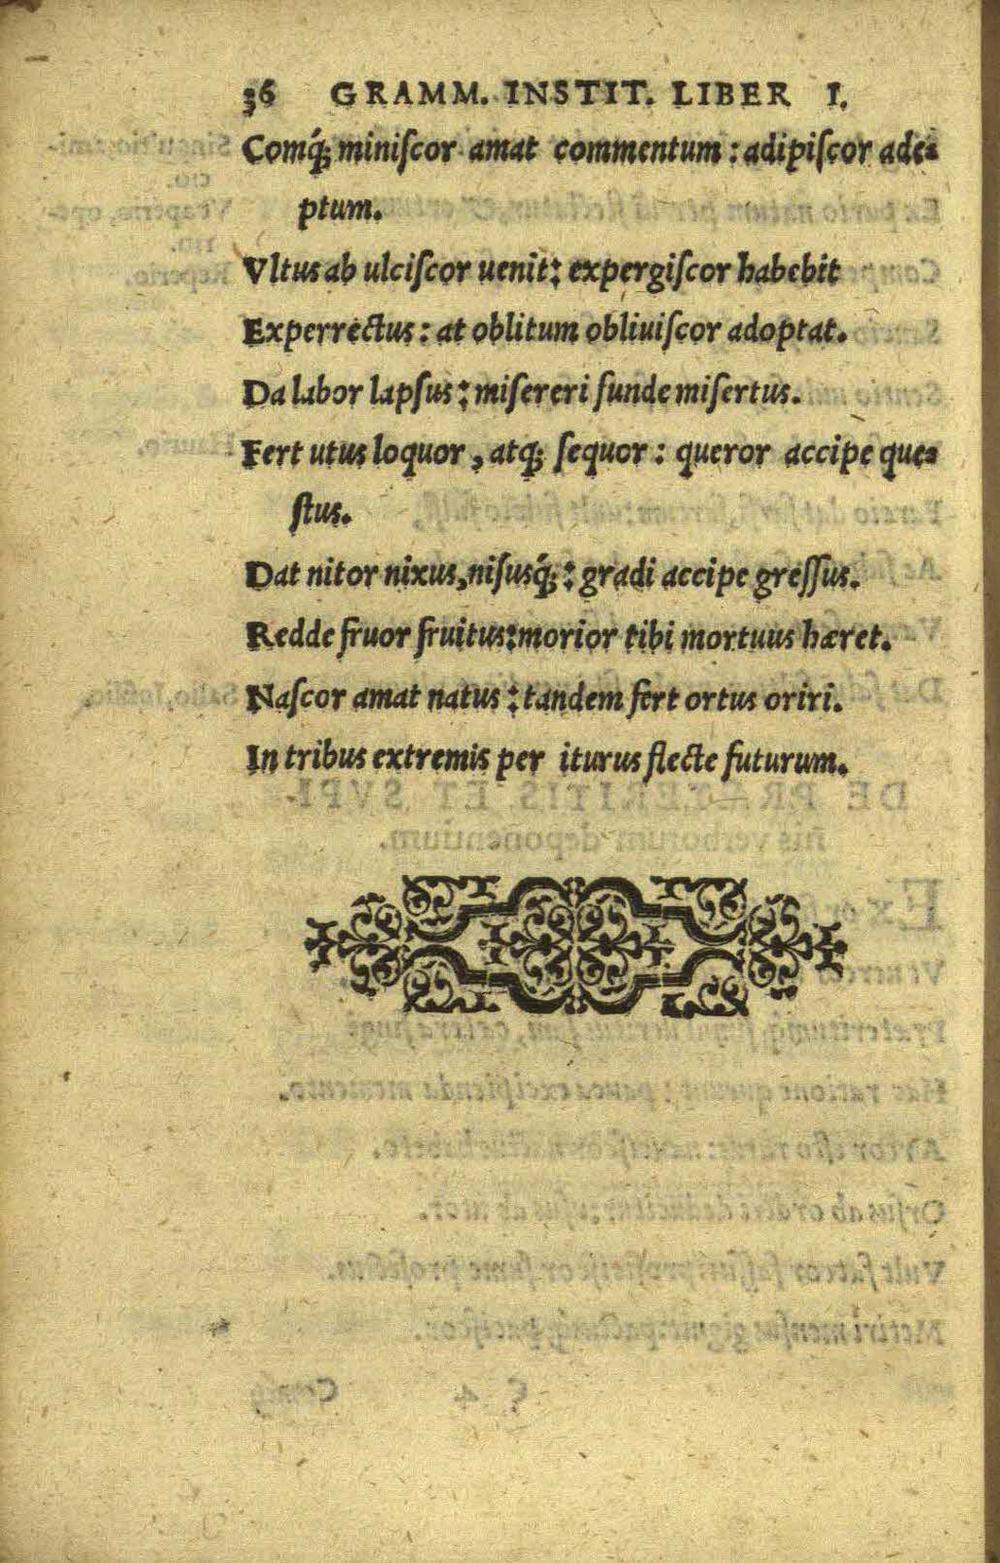 36 GRAMM. INSTIT. LIBER I.
Comq́; miniſcor amat commentum : adipiſcor ade-
ptum.
Vltus ab ulciſcor uenit: expergiſcor habebit
Experrectus : at oblitum obliuiſcor adoptat.
Da labor lapſus : miſereri funde miſertus.
Fert utus loquor, atq; ſequor : queror accipe que-
ſtus.
Dat nitor nixus, niſusq́; : gradi accipe greſſus.
Redde fruor fruitus: morior tibi mortuus hæret.
Naſcor amat natus : tandem fert ortus oriri.
In tribus extremis per iturus flecte futurum.